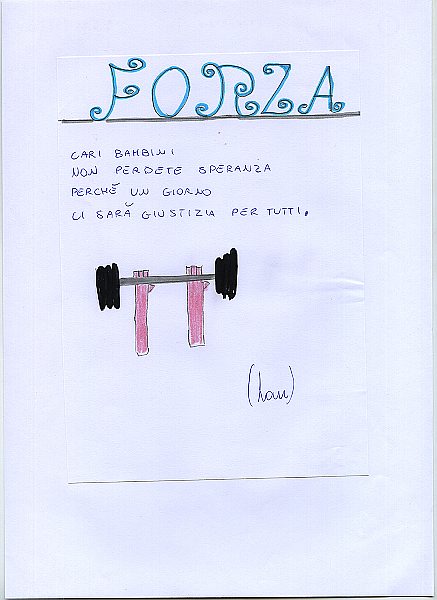 FORZA
CARI BAMBINI
NON PERDETE SPERANZA
PERCHÉ UN GIORNO
CI SARÀ GIUSTIZIA PER TUTTI.